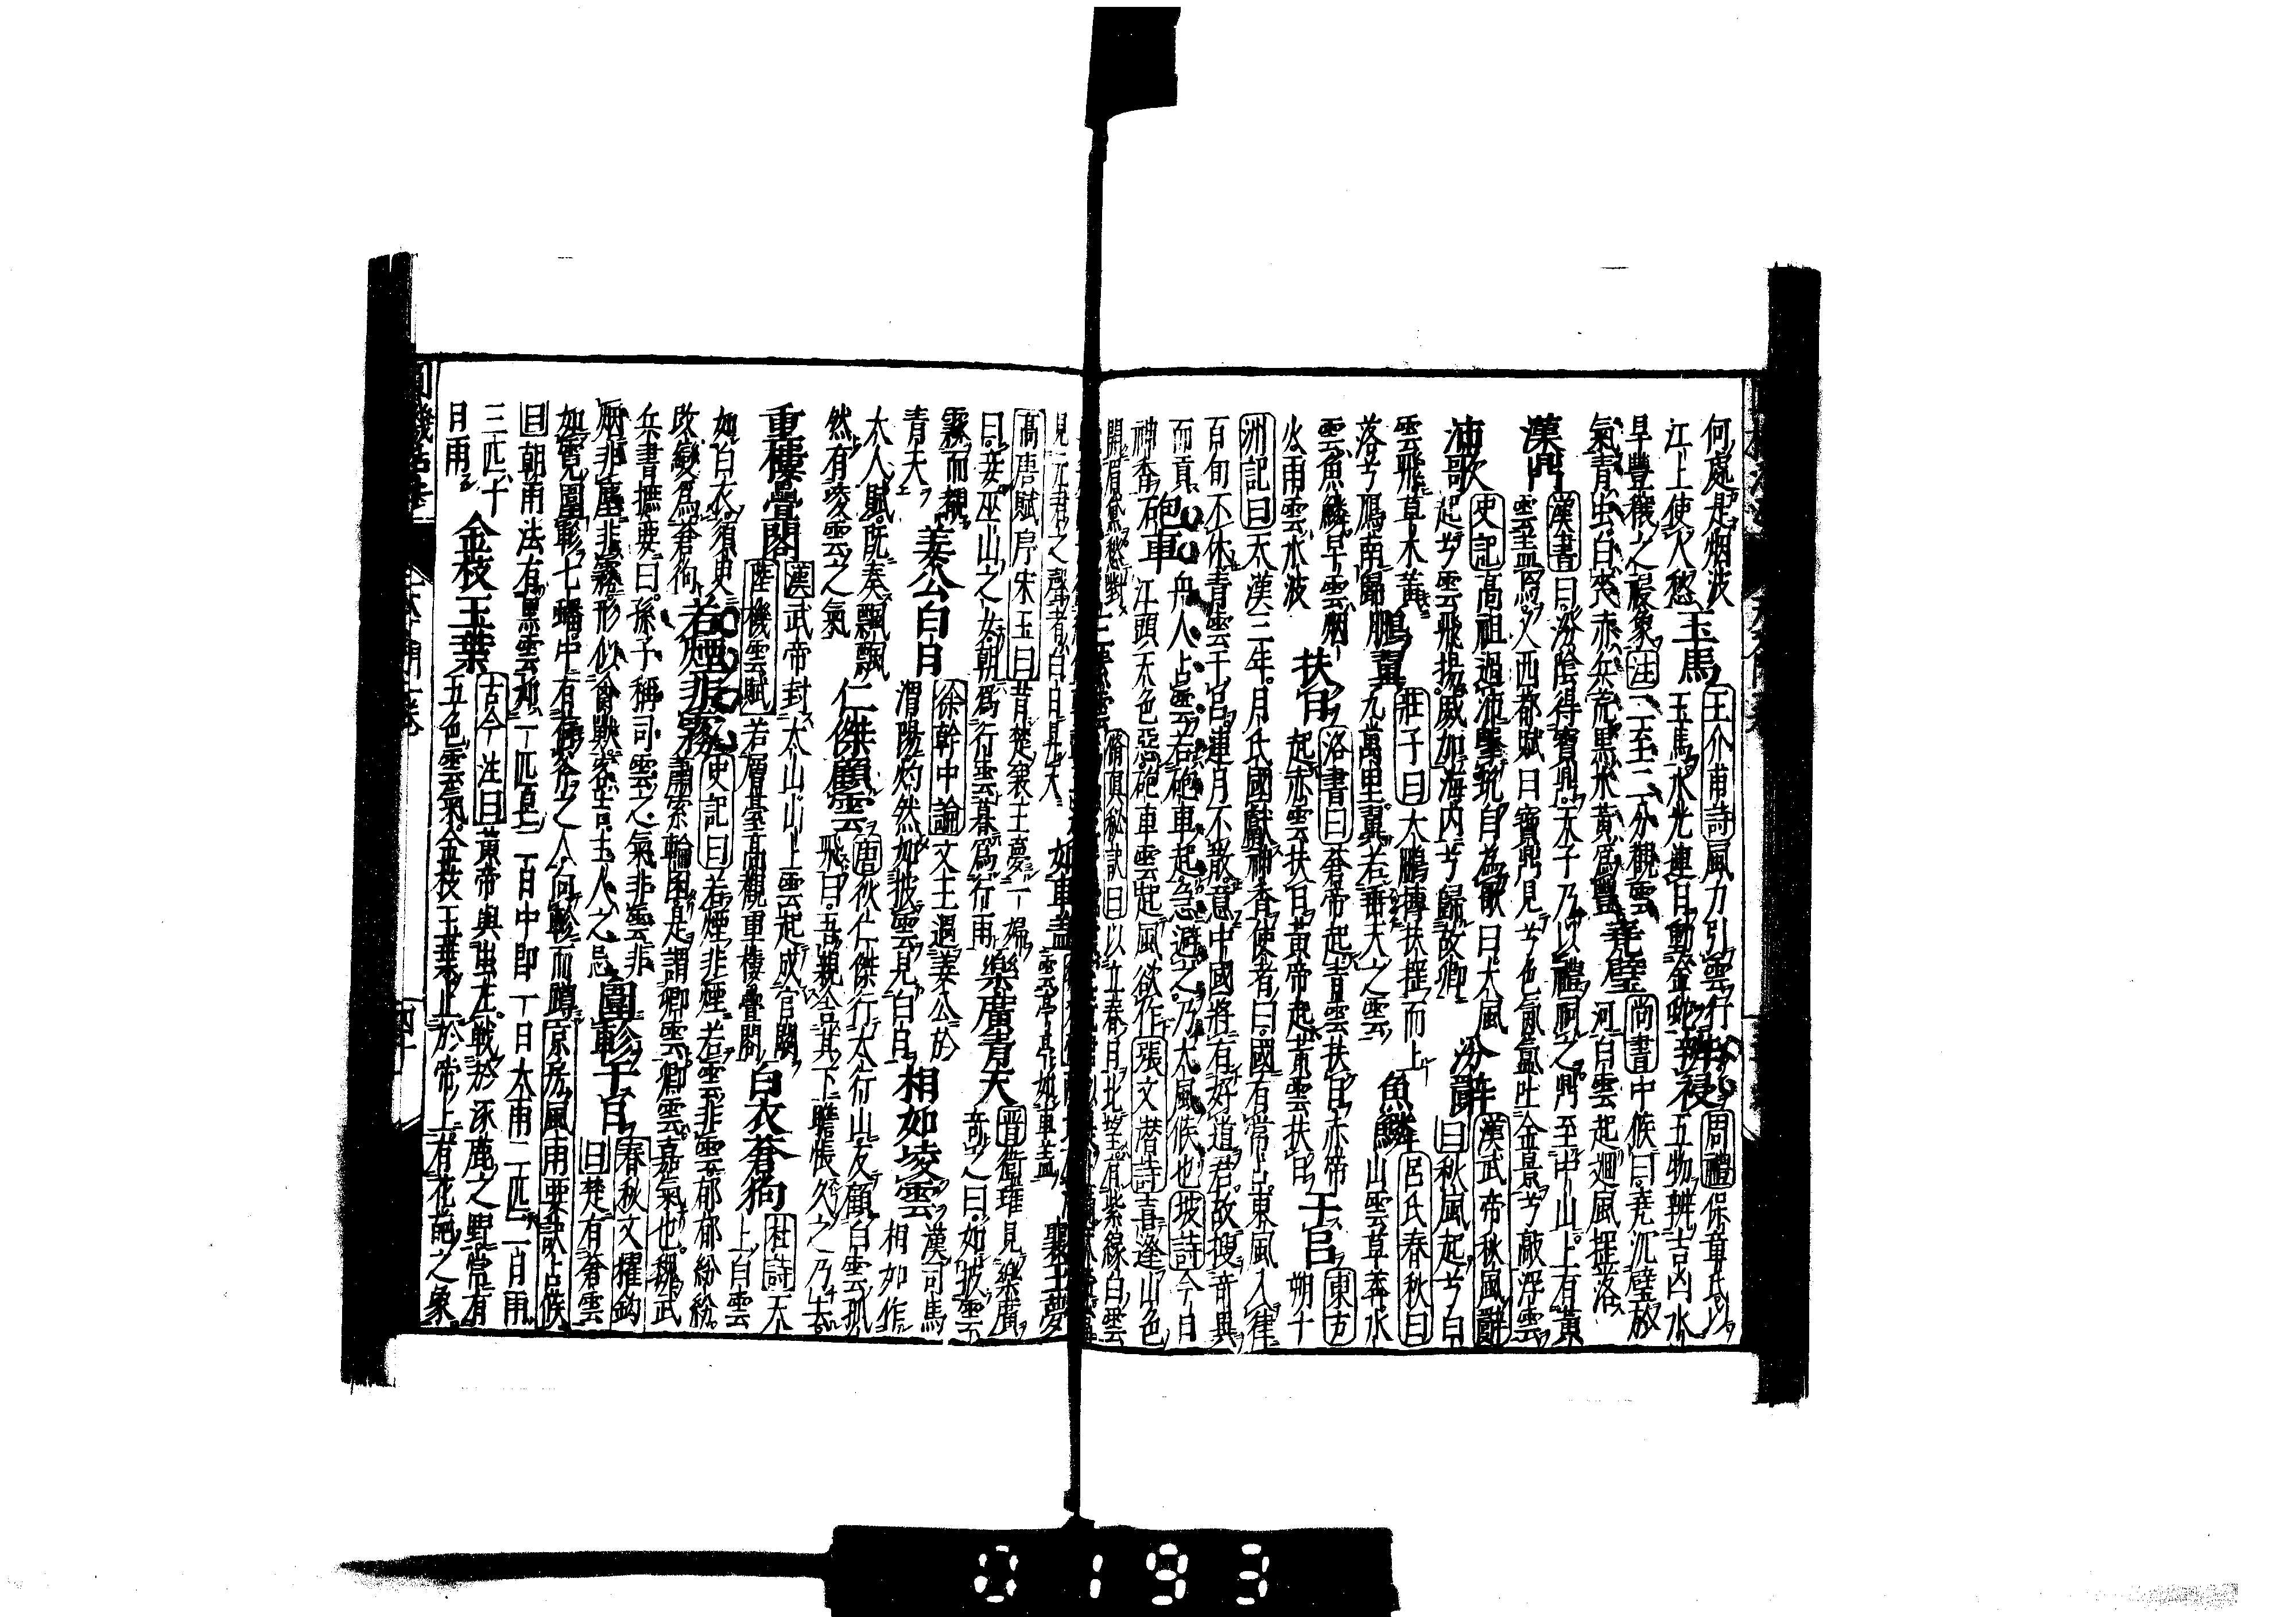 何處是烟波 玉馬 王介甫詩 風力引雲行 辨祲 周禮 保章氏以
江上使人愁 玉馬水光連日動金蛇 五物辨吉凶水
旱豐穰之祲象 注 二至二分觀雲 堯璧 尚書 中候曰堯沉璧放
氣青虫白喪赤兵荒黑水黃為豐 河白雲起迴風搖落
漢鼎 漢書 曰汾陰得寶鼎天子乃以禮祠之鼎至中山上有黃
雲蓋焉又西都賦曰寶鼎見兮色氤氳吐金景兮歊浮雲
沛歌 史記 高祖過沛擊筑自為歌曰大風 汾辭 漢武帝秋風辭
起兮雲飛揚威加海內兮歸故鄉 曰秋風起兮白
雲飛草木黃 鵬翼 莊子曰 大鵬摶扶搖而上 魚鱗 呂氏春秋曰
落兮鴈南歸 九萬里翼若垂天之雲 山雲草莽水
雲魚鱗旱雲烟 扶日 洛書曰 蒼帝起青雲扶日赤帝 干呂 東方
火雨雲水波 起赤雲扶日黃帝起黃雲扶日 朔十
洲記曰 天漢三年月氏國獻神香使者曰國有常占東風入律
百旬不休青雲干呂連月不散意中國將有好道君故搜奇異
而貢 砲車 舟人占雲若砲車起急避之乃大風候也 坡詩 今日
神香 江頭天色惡砲車雲起風欲作 張文潜詩 喜逢山色
開眉黛愁對 三素雲 脩真秘訣曰 以立春月北望有紫綠白雲
見元君之輦者白日昇天 如車蓋 雲亭亭如車蓋 襄王夢
高唐賦序宋玉曰 昔楚襄王夢一婦 樂廣青天 晋 衛瓘見樂廣
曰妾巫山之女朝為行雲暮為行雨 奇之曰如披雲
霧而覩 姜公白日 徐幹中論 文王遇姜公於 相如凌雲 漢 司馬
青天 渭陽灼然如披雲見白日 相如作
大人賦既奏飄飄 仁傑顧雲 唐 狄仁傑行太行山友顧白雲孤
然有凌雲之氣 飛曰吾親舍其下瞻悵久之乃去
重樓疊閣 漢 武帝封太山山上雲起成宮闕 白衣蒼狗 杜詩 天
陸機雲賦 若層臺高觀重樓疊閣 上白雲
如白衣須臾 若煙非霧 史記曰 若煙非煙若雲非雲郁郁紛紛
改變為蒼狗 蕭索輪囷是謂卿雲卿雲嘉氣也魏武
兵書摭要曰孫子稱司雲之氣非雲非 圍軫干日 春秋文耀鈎
烟非塵非霧形似禽獸客吉主人之忌 曰 楚有蒼雲
如霓圍軫七蟠中有荷斧之人向軫而蹲 京房風雨要訣占候
曰 朝雨法有黑雲如一匹皂一日中即一日大雨二匹二日雨
三匹十 金枝玉葉 古今注曰 黃帝與蚩尤戰於涿鹿之野常有
日雨 五色雲氣金枝玉葉止於帝上有花葩之象
0193